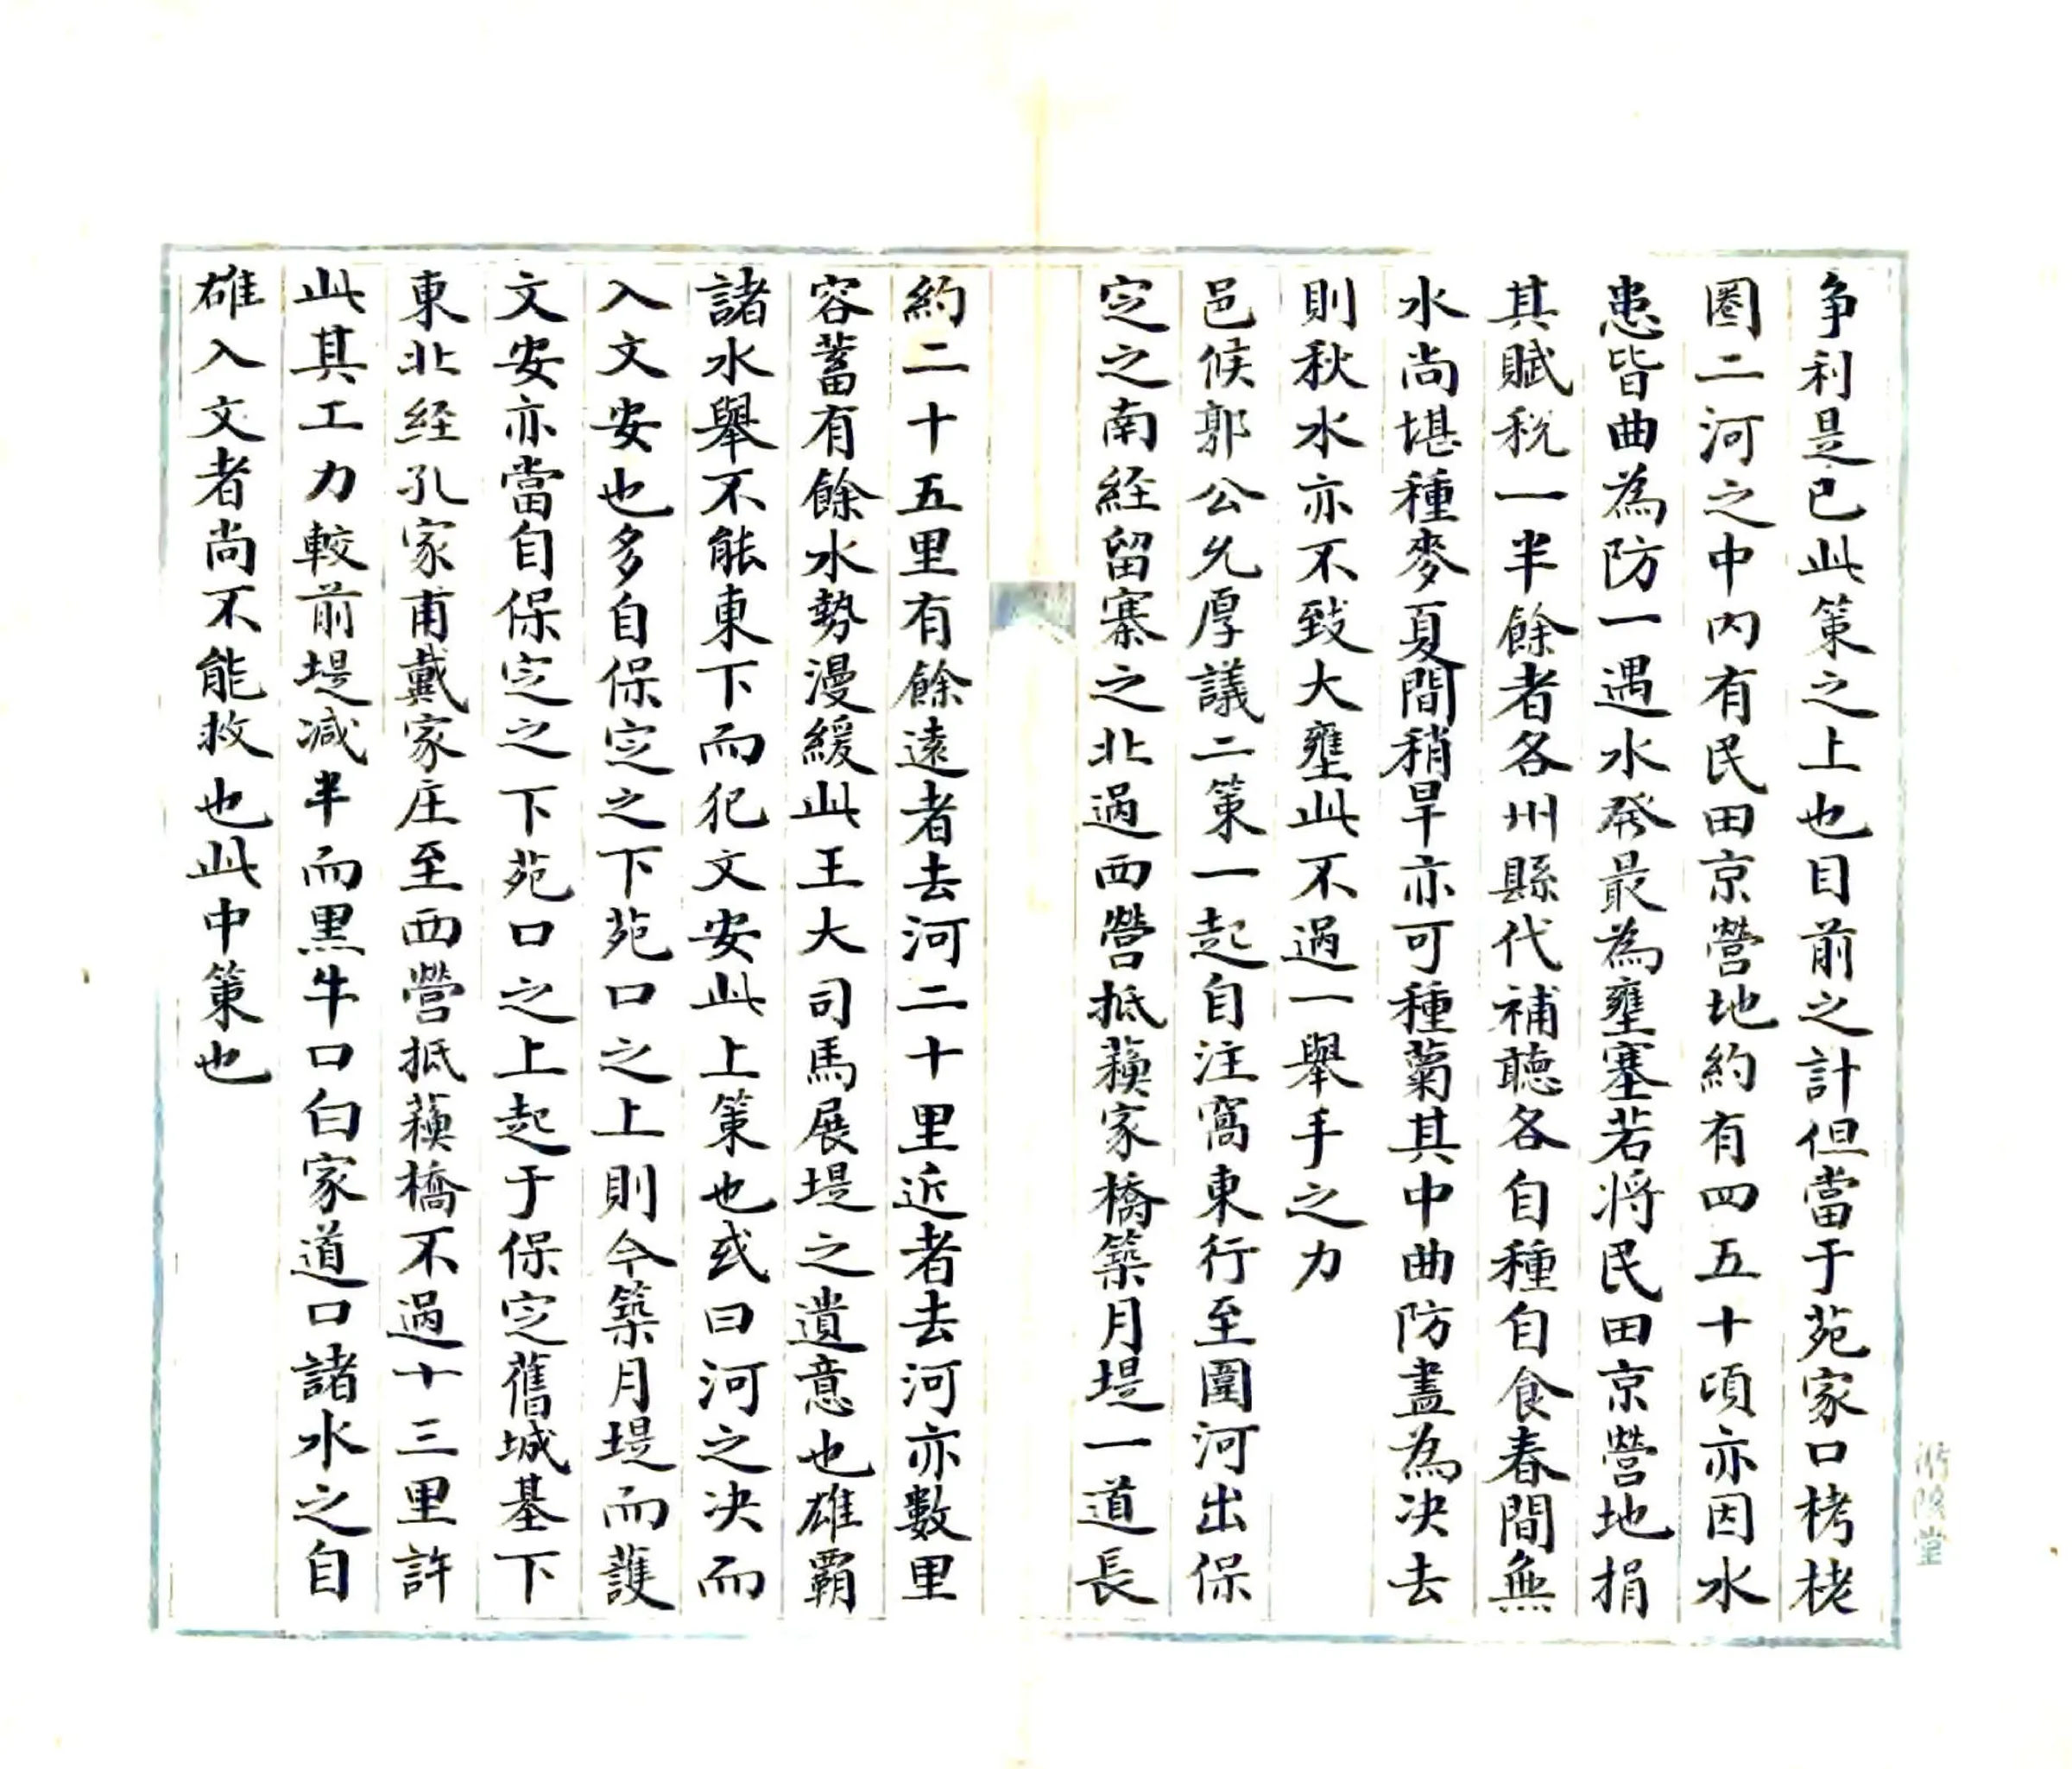 争利是已此策之上也目前之計但當于苑家口栲栳
圈二河之中内有民田京營地約有四五十頃亦因水
患皆曲為防一遇水發最為壅塞若将民田京營地捐
其賦稅一半餘者各州縣代補聴各自種自食春間無
水尚堪種麥夏間稍旱亦可種薥其中曲防盡為决去
則秋水亦不致大壅此不過一舉手之力
邑候郭公允厚議二策一起自注窩東行至圍河出保
定之南経留寨之北過西營抵蘓家橋築月堤一道長
約二十五里有餘遠者去河二十里近者去河亦數里
容蓄有餘水勢漫緩此王大司馬展堤之遺意也雄霸
諸水舉不能東下而犯文安此上策也或曰河之决而
入文安也多自保定之下苑口之上則今築月堤而護
文安亦當自保定之下苑口之上起于保定舊城基下
東北経孔家甫戴家庄至西營抵蘓橋不過十三里許
此其工力較前堤減半而黒牛口白家道口諸水之自
雄入文者尚不能救也此中策也
堂